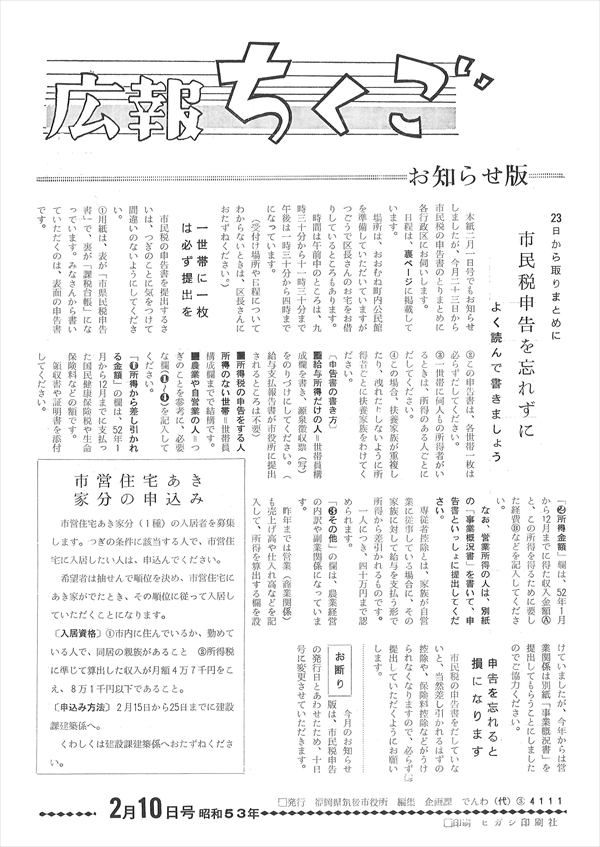 広報ちくご
お知らせ版
23日から取りまとめに
市民税申告を忘れずに
よく読んで書きましょう
本紙二月一日号でもお知らせ
しましたが、今月二十三日から
市民税の申告書のとりまとめに
各行政区にお伺いします。
日程は、裏ページに掲載して
います。
場所は、おおむね町内公民館
を準備していただいていますが
つごうで区長さんのお宅をお借
りしているところもあります。
時間は午前中のところは、九
時三十分から十一時三十分まで
午後は一時三十分から四時まで
になっています。
(受付け場所や日程について
わからないときは、区長さんに
おたずねください。)
一世帯に一枚
は必ず提出を
市民税の申告書を提出するさ
いは、つぎのことに気をつけて
間違いのないようにしてくださ
い。
①用紙は、表が「市県民税申告
書」で、裏が「課税台帳」にな
っています。みなさんから書い
ていただくのは、表面の申告書
です。
②この申告書は、各世帯一枚は
必らずだしてください。
③一世帯に何人もの所得者がい
るときは、所得のある人ごとに
だしてください。
④この場合、扶養家族が重複し
たり、洩れたりしないように所
得者ごとに扶養家族をわけてく
ださい。
〔申告書の書き方〕
■給与所得だけの人=世帯員構
成欄を書き、源泉徴収票(写)
をのりづけにしてください。(
給与支払報告書が市役所に提出
されるところは不要)
■所得税の申告をする人
所得のない世帯=世帯員
構成欄までで結構です。
■農業や自営業の人=つ
ぎのことを参考に、必要
な欄(❶~❹)を記入して
ください。
「❶所得から差し引かれ
る金額」の欄は、52年1
月から12月までに支払っ
た国民健康保険税や生命
保険料などの額です。
領収書や証明書を添付
してください。
「❷所得金額」欄は、52年1月
から12月までに得た収入金額Ⓐ
と、この所得を得るために要し
た経費Ⓑなどを記入してくださ
い。
なお、営業所得の人は、別紙
の「事業概況書」を書いて、申
告書といっしょに提出してくだ
さい。
専従者控除とは、家族が自営
業に従事している場合に、その
家族に対して給与を支払う形で
所得から差引かれるものです。
一人につき、四十万円まで認
められます。
「❸その他」の欄は、農業経営
の内訳や副業関係になっていま
す。
昨年までは営業(商業関係)
も売上げ高や仕入れ高などを記
入して、所得を算出する欄を設
けていましたが、今年からは営
業関係は別紙「事業概況書」を
提出してもらうことにしました
のでご協力ください。
申告を忘れると
損になります
市民税の申告書をだしていな
いと、当然差しひかれるはずの
控除や、保険料控除などがうけ
られなくなりますので、必らず
提出していただくようにお願い
します。
お断り
今月のお知らせ
版は、市民税申告
の発行日とあわせたため、十日
号に変更させていただきます。
市営住宅あき
家分の申込み
市営住宅あき家分(1種)の入居者を募集
します。つぎの条件に該当する人で、市営住
宅に入居したい人は、申込んでください。
希望者は抽せんで順位を決め、市営住宅に
あき家がでたとき、その順位に従って入居し
ていただくことになります。
〔入居資格〕①市内に住んでいるか、勤めて
いる人で、同居の親族があること ②所得税
に準じて算出した収入が月額4万7千円をこ
え、8万1千円以下であること。
〔申込み方法〕2月15日から25日までに建設
課建築係へ。
くわしくは建設課建築係へおたずねくださ
い。
2月10日号 昭和53年
□発行 福岡県筑後市役所 編集 企画課 でんわ(代)③4111
□印刷 ヒガシ印刷社